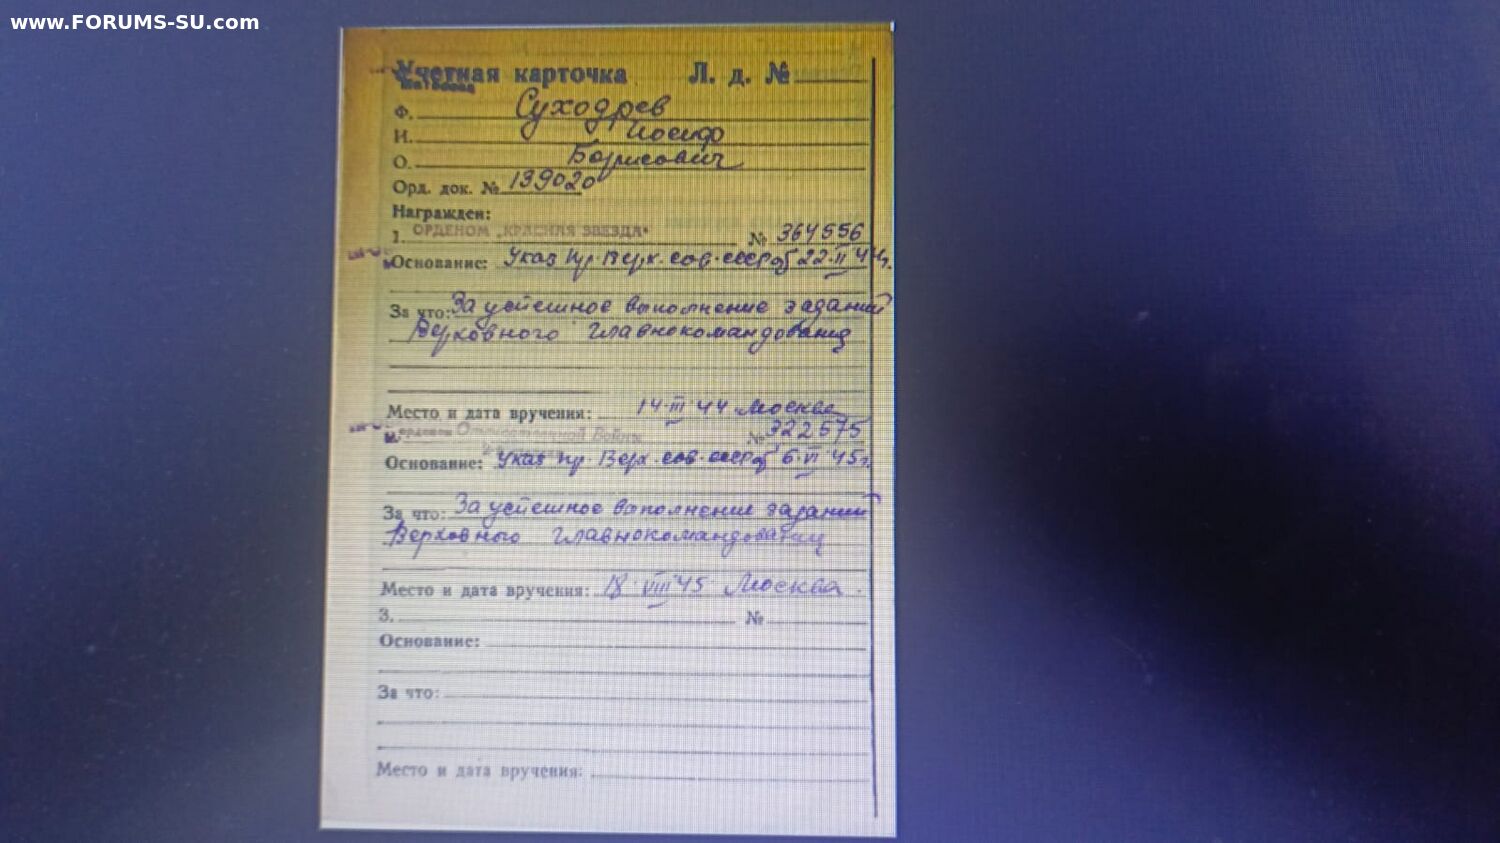 www.FORUMS-SU.com
Учетная карточка Л. д. №
Ф. Суходрев
И. Иосиф
О. Борисович
Орд. док. № 139020
Награжден:
1. ОРДЕНОМ „КРАСНАЯ ЗВЕЗДА" № 364556
Основание: Указ Пр. Верх. сов. ссср от 22·II 44г.
За что: За успешное выполнение заданий
Верховного Главнокомандования
Место и дата вручения: 14·III 44 Москва
орденом Отечественной Войны № 322575
Основание: Указ Пр. Верх. сов. ссср от 6·VI 45г.
За что: За успешное выполнение заданий
Верховного Главнокомандования
Место и дата вручения: 18·VIII 45 Москва.
3. №
Основание:
За что:
Место и дата вручения: